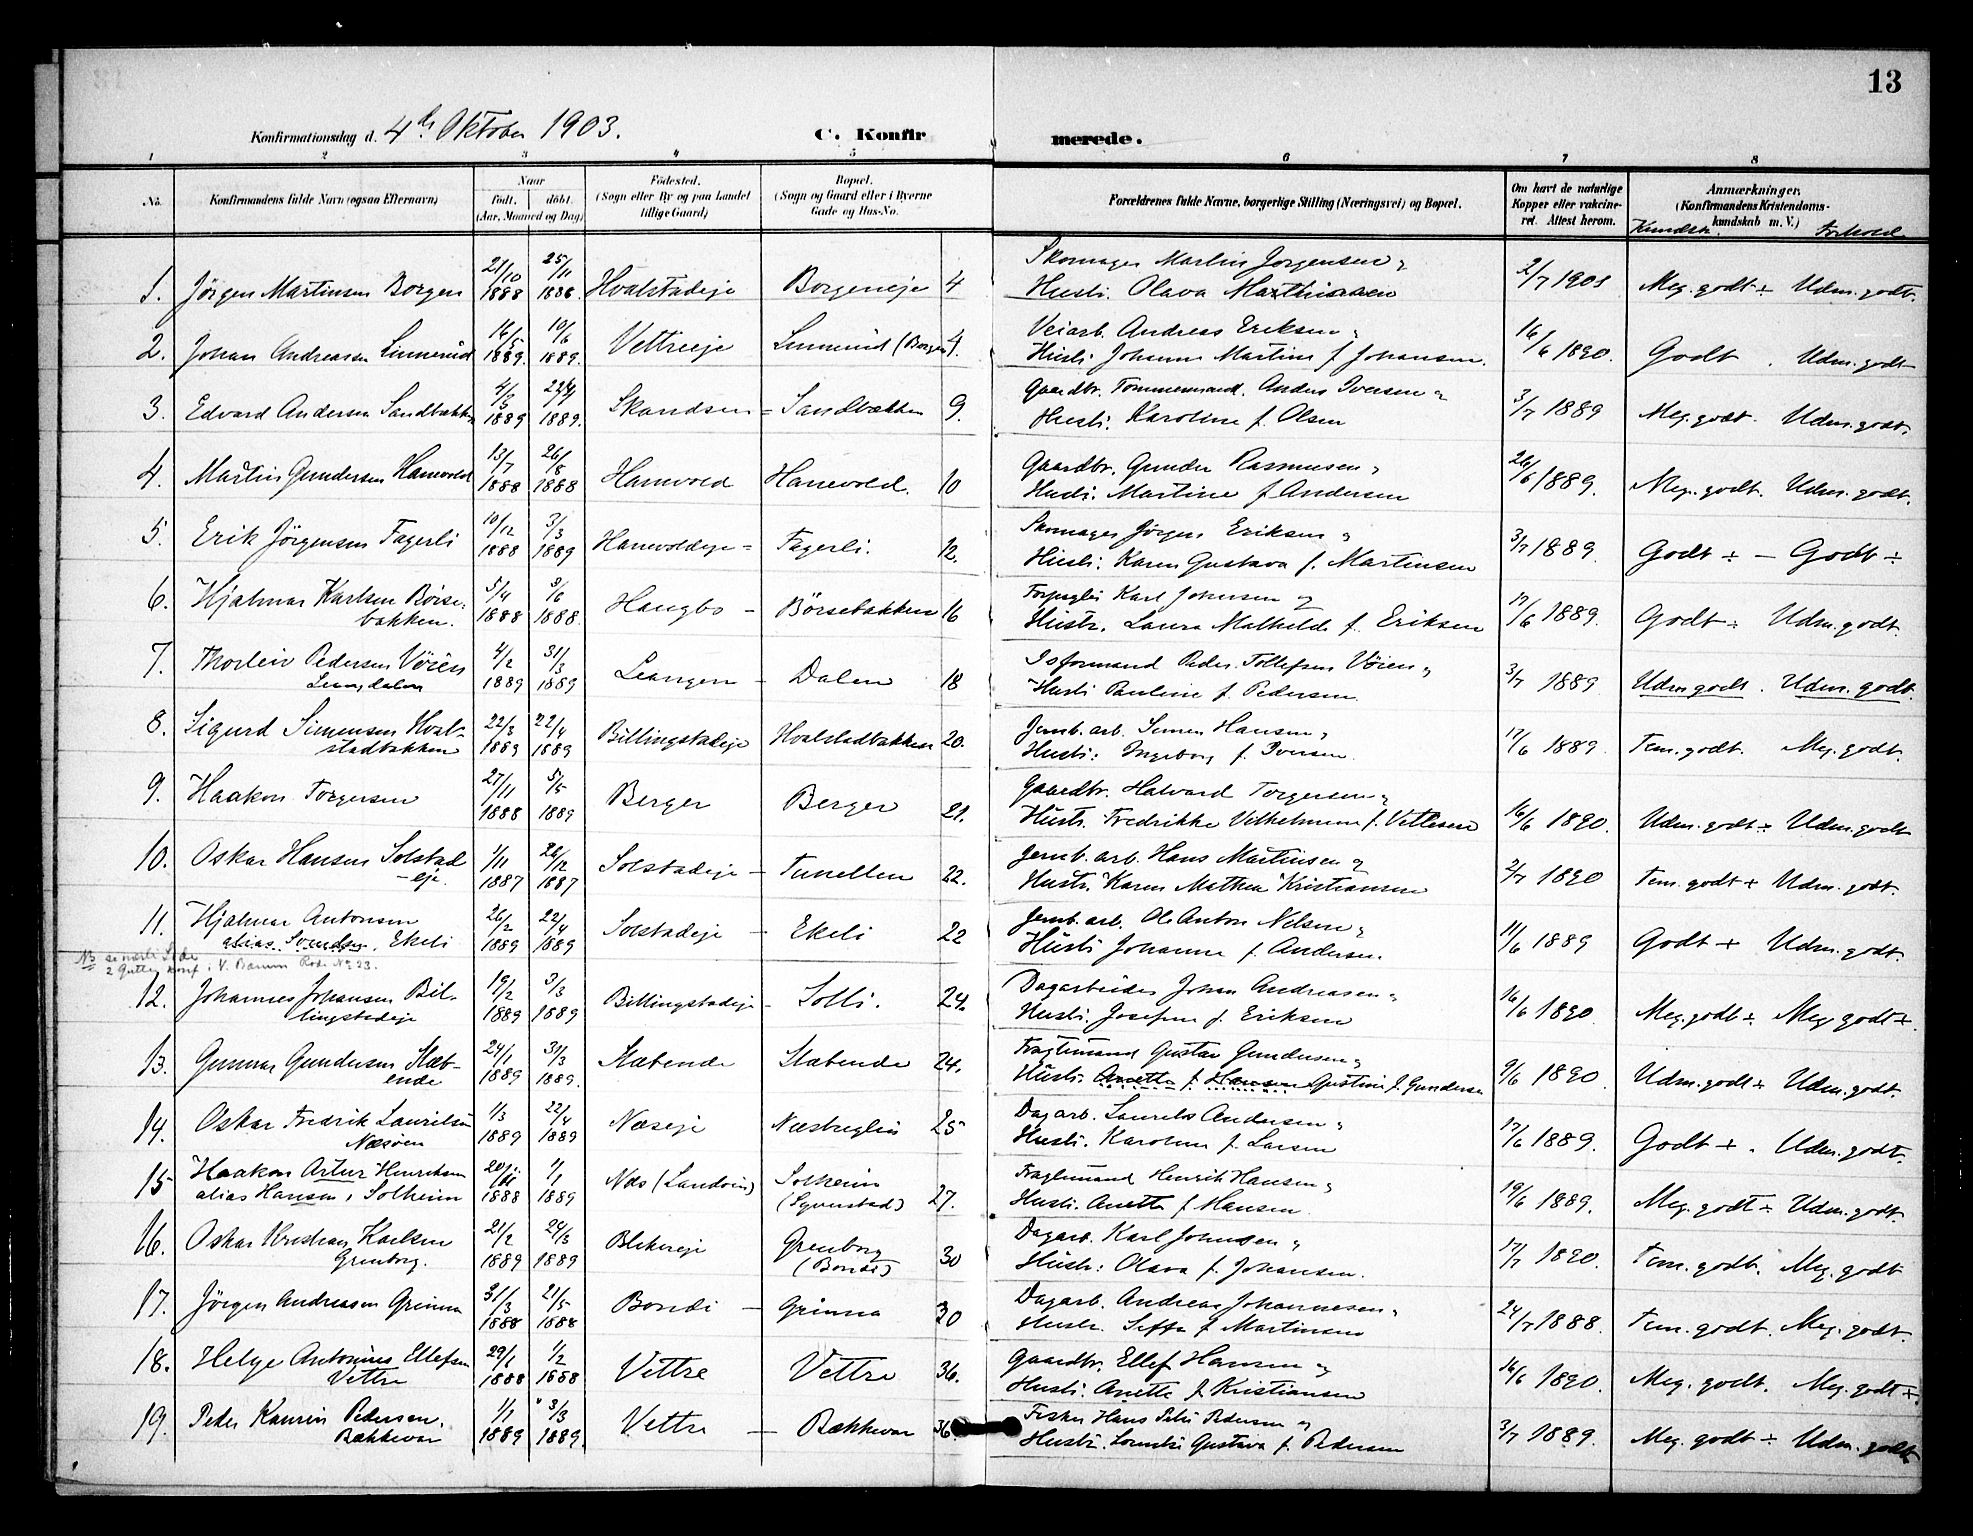 13
Konfirmationsdag d. 4de Oktober 1903.
C. Konfir merede.
1 2 3 4 5 6 7 8
No.
Konfirmandens fulde Navn (ogsaa Efternavn)
Naar
født. døbt.
(Aar, Maaned og Dag)
Fødested.
(Sogn eller By og paa Landet
tillige Gaard)
Bopæl.
(Sogn og Gaard eller i Byerne
Gade og Hus-No.
Forældrenes fulde Navne, borgerlige Stilling (Næringsvei) og Bopæl.
Om havt de naturlige
Kopper eller vakcine-
ret. Attest herom.
Anmærkninger.
(Konfirmandens Kristendoms-
kundskab m. V.)
Kundsk. Forhold
21/10 25/11 Skomager Martin Jørgensen og
1. Jörgen Martinsen Borgen 1888 1888 Hvalstadeje Borgeneje 4 Hustr. Olava 2/7 1901 Meg. godt ÷ Udm. godt.
16/5 10/6 Veiarb. Andreas Eriksen og
2. Johan Andreassen Linnerud 1889. 1889. Vettreeje Linnerud (Borgen) 4. Hustr. Johanne Martine f. Johansen. 16/6 1890. Godt. Udm. godt
4/3 22/4 Gaardbr. Tømmermand. Anders Iversen og
3. Edvard Andersen Sandbakken 1889 1889. Skandsen = Sandbakken 9. Hustr. Karoline f. Olsen 3/7 1889 Meg. godt. Udm. godt.
13/7 26/8 Gaardbr. Gunder Rasmussen og
4. Martin Gundersen Hanevold 1888 1888 Hanevold Hanevold. 10 Hustr. Martine f. Andersen 26/6 1889. Meg. godt. Udm. godt.
10/12 3/3 Skomager Jørgen Eriksen og
5. Erik Jörgensen Fagerli 1888 1889 Hanevoldeje = Fagerli. 12. Hustr. Karen Gustava f. Martinsen 3/7 1889. Godt ÷ – Godt ÷
5/4 3/6 Karl Johnsen og
6. Hjalmar Karlsen Börse- 1888 1888. Haugbo – Börsebakken 16 Hustr. Laura Mathilde f. Eriksen 17/6 1889. Godt ÷ Udm. godt.
bakken.
4/2 31/3 Isformand Peder Tollefsen Vöien og
7. Thorleiv Pedersen Vöien 1889 1889 Leangen – Dalen 18 Hustr. Pauline f. Pedersen. 3/7 1889 Udm. godt. Udm. godt.
Leangdalen
22/3 22/4 Jernb. arb. Simen Hansen og
8. Sigurd Simensen Hval- 1889 1889 Billingstadeje Hvalstadbakken 20. Hustr: Ingeborg f. Iversen. 17/6 1889. Tem. godt. Meg. godt.
stadbakken
27/11 5/5 Gaardbr. Halvard Torgersen og
9. Haakon Torgersen 1888 1889 Berger Berger 21. Hustr. Fredrikke Vilhelmine f. Vettesen 16/6 1890. Udm. godt ÷ Udm. godt
1/11 26/12 Jernb. arb. Hans Martinsen og
10. Oskar Hansen Solstad 1887 1887 Solstadeje – Tunellen 22. Hustr. Karen Mathea Kristiansen 2/7 1890 Tem. godt + Udm. godt.
– eje.
26/2 22/4 Jernb. arb. Ole Anton Nelsen og
11. Hjalmar Antonsen 1889 1889 Solstadeje – Ekeli 22 Hustr. Johanne f. Andersen. 11/6 1889 Godt + Udm. godt.
alias Svendsen, Ekeli
NB se næste Side
2 Gutter konf. i V. Bærum Rode No 23.
19/2 3/3 Dagarbeider Johan Andreasen og
12. Johannes Johansen Bil- 1889 1889 Billingstadeje – Solli. 24. Hustr. Josefine f. Eriksen 16/6 1890 Meg. godt ÷. Meg godt +.
lingstadeje
24/1 31/3 Fragtemand Gustav Gundersen og
13. Gunnar Gundersen Stæb- 1889 1889. Stæbende Stæbende 24. Hustr. Anette f. Hansen Gustine f. Gundersen 9/6 1890. Udm. godt + Udm. godt.
ende
1/3 22/4 Dagarb. Laurits Andersen og
14. Oskar Fredrik Lauritsen 1889 1889 Næseje 25 Hustr. Karoline f. Larsen 17/6 1889. Godt +. Udm. godt.
Næsøen
20/11 1/1 Fragtemand Henrik Hansen og
15 Haakon Artur Henriksen 1888 1889 Næs (Landøen) Solheim 27. Hustr. Anette f. Hansen. 19/6 1889. Meg. godt ÷ Udm. godt.
alias Hansen, Solheim (Syverstad)
21/2 24/3 Dagarb. Karl Johnsen og
16. Oskar Kristian Karlsen 1889 1889 Blekereje Grenborg 30 Hustr: Olava f. Johansen. 17/7 1890. Tem. godt. Meg. godt
Grenborg. (Bondi)
31/3 21/5 Dagarb. Andreas Johannesen og
17. Jörgen Andreasen Grinna 1888 1888 Bondi – Grinna 30 Hustr. f. Martinsen 24/7 1888. Tem. godt. Meg. godt.
29/1 1/2 Gaardbr. Ellef Hansen og
18. Helge Antonius Ellefsen 1888 1888 Vettre Vettre 36. Hustr. Anette f. Kristiansen 16/6 1890. Meg. godt. Meg. godt +.
Vettre
1/1 3/3 Fisker Hans Peter Pedersen og
19. Peder Kaurin Pedersen. 1889 1889. Vettre – Bækkevar 36. Hustr. Gustava f. Pedersen 3/7 1889. Meg. godt ÷ Udm. godt
Bækkevar